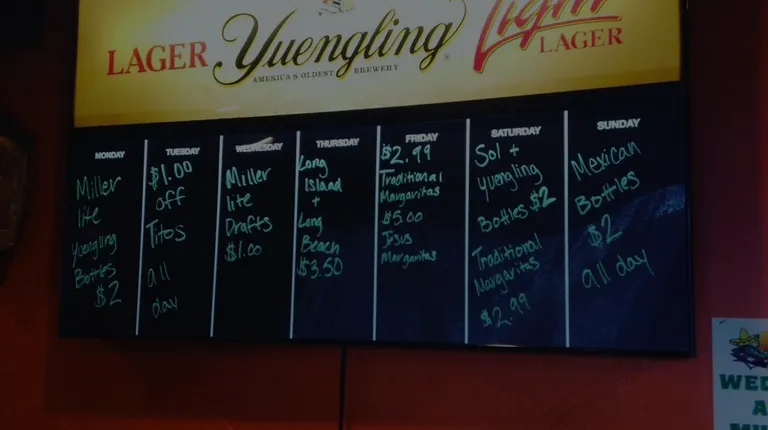 LAGER Yuengling Light LAGER
AMERICA'S OLDEST BREWERY
MONDAY
Miller
lite
Yuengling
Bottles
$2
TUESDAY
$1.00
off
Titos
all
day
WEDNESDAY
Miller
lite
Drafts
$1.00
THURSDAY
Long
Island
+
Long
Beach
$3.50
FRIDAY
$2.99
Traditional
Margaritas
$5.00
Jesus
Margaritas
SATURDAY
Sol +
Yuengling
Bottles $2
Traditional
Margaritas
$2.99
SUNDAY
Mexican
Bottles
$2
all day
WED
A